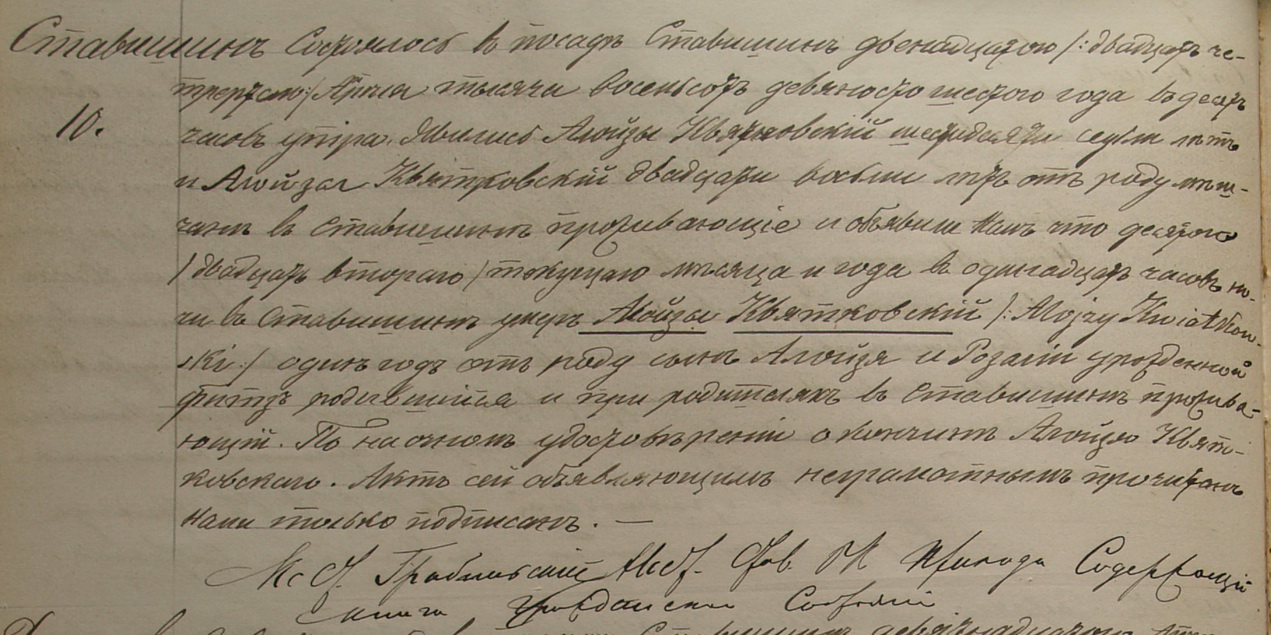 Ставишинъ Состоялось в посадѣ Ставишинѣ двенадцатаго /: двадцать че-
твертаго :/ Марта тысяча восемьсотъ девяносто шестого года въ десять
10. часовъ утра. Явились Алойзы Квятковскій шестидесяти семи лѣтъ
и Алойзы Квятковскій двадцати восьми лѣтъ отъ роду мѣщ-
чане в Ставишинѣ проживающіе и объявили намъ что десятого
/ двадцать втораго / текущаго мѣсяца и года в одинадцать часовъ но-
чи въ Ставишинѣ умеръ Алойзы Квятковскій /: Alojzy Kwiatkow-
ski :/ одинъ годъ отъ роду сынъ Алойзя и Розаліи урожденной
родившійся и при родителяхъ в Ставишинѣ прожива-
ющій. По настоящемъ удостовѣреніи о кончинѣ Алойзего Квят-
ковскаго. Актъ сей объявляющимъ неграмотнымъ прочитанъ
нами только подписанъ. —
Кс. Прихода Содержащій
Книги Гражданскаго Состоянія